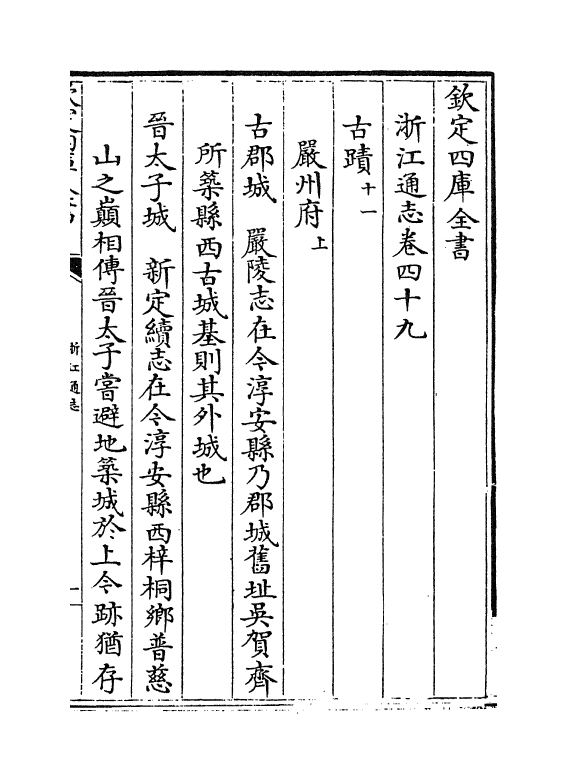 欽定四庫全書
浙江通志卷四十九
古蹟十一
嚴州府上
古郡城　嚴陵志在今淳安縣乃郡城舊址吳賀齊
所築縣西古城基則其外城也
晉太子城　新定續志在今淳安縣西梓桐鄉普慈
山之巔相傳晉太子嘗避地築城於上今跡猶存
浙江通志
一